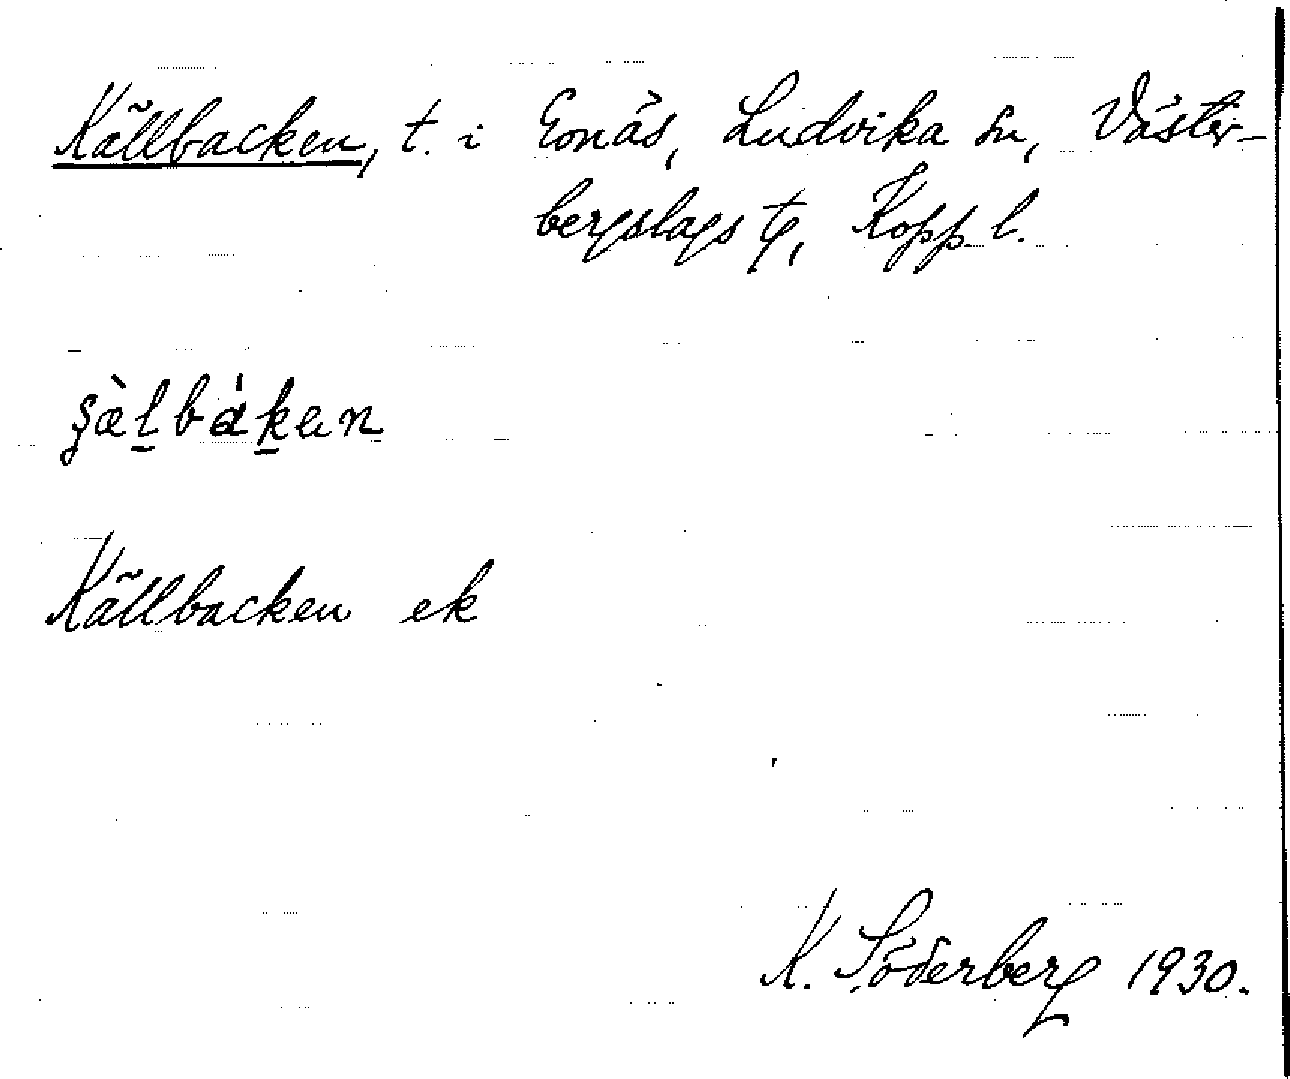 Källbacken, t. i Gonäs, Ludvika sn, Väster-
bergslags tg, Kopp. l.
Källbacken ek
K. Söderberg 1930.